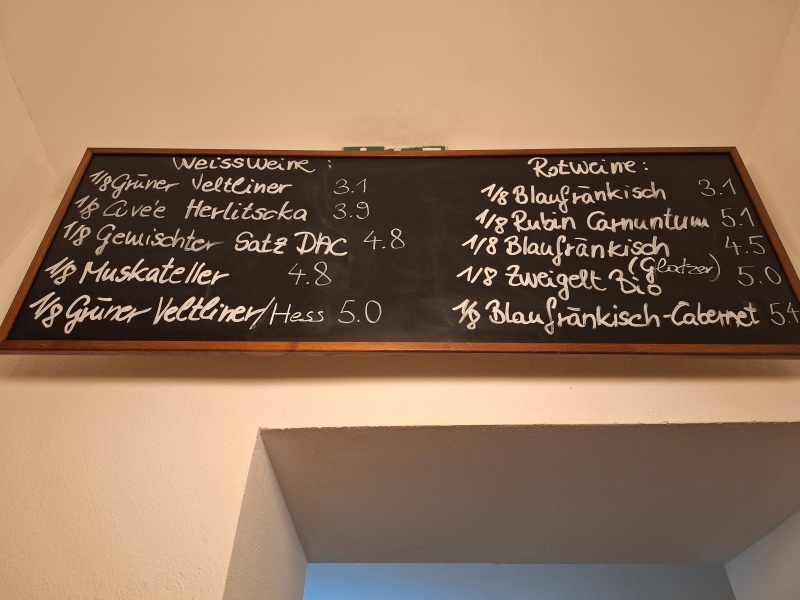 Weissweine:
1/8 Grüner Veltliner 3.1
1/8 Cuvée Herlitscka 3.9
1/8 Gemischter Satz DAC 4.8
1/8 Muskateller 4.8
1/8 Grüner Veltliner/Hess 5.0
Rotweine:
1/8 Blaufränkisch 3.1
1/8 Rubin Carnuntum 5.1
1/8 Blaufränkisch 4.5
(Glatzer)
1/8 Zweigelt Bio 5.0
1/8 Blaufränkisch-Cabernet 5.4